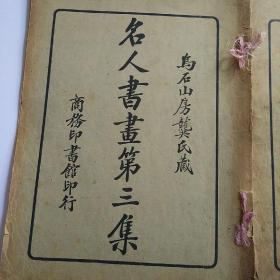 烏石山房龔氏藏
名人書畫第三集
商務印書館印行